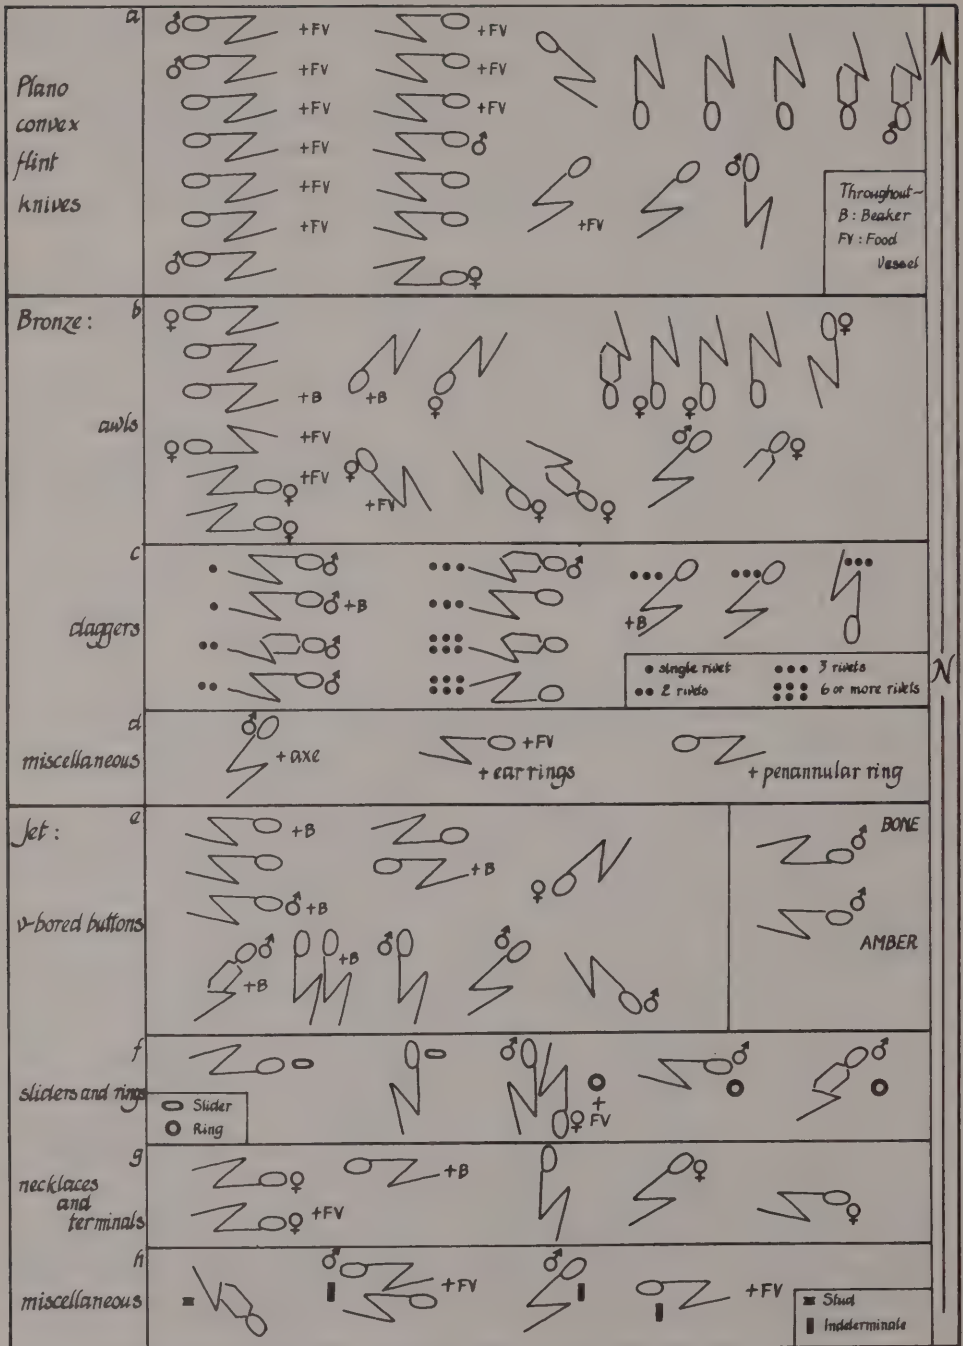 a
Plano
convex
flint
knives
+FV
+FV
+FV
+FV
+FV
+FV
+FV
+FV
+FV
+FV
Throughout-
B: Beaker
FV: Food
Vessel
b
Bronze:
awls
+B
+B
+FV
+FV
+FV
c
daggers
+B
+B
single rivet
3 rivets
2 rivets
6 or more rivets
N
d
miscellaneous
+axe
+FV
+earrings
+penannular ring
e
Jet:
v-bored buttons
+B
+B
+B
+B
+B
BONE
AMBER
f
sliders and rings
Slider
Ring
+
FV
g
necklaces
and
terminals
+B
+FV
h
miscellaneous
+FV
+FV
Stud
Indeterminate